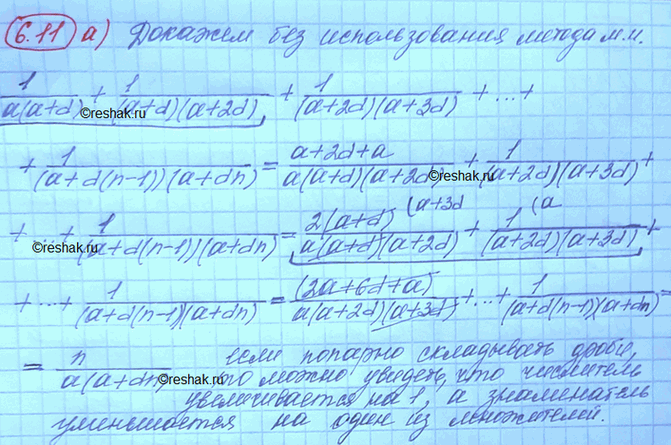 6.11 а) Докажем без использования метода м.и.
1/(a(a+d)) + 1/((a+d)(a+2d)) + 1/((a+2d)(a+3d)) + ... +
+ 1/((a+d(n-1))(a+dn)) = (a+2d+a)/(a(a+d)(a+2d)) + 1/((a+2d)(a+3d)) +
+ ... + 1/((a+d(n-1))(a+dn)) = 2(a+d) (a+3d /(a(a+d)(a+2d)) + 1 (a /((a+2d)(a+3d)) +
+ ... + 1/((a+d(n-1)(a+dn)) = (2a+6d+a)/(a(a+2d)(a+3d)) + ... + 1/((a+d(n-1)(a+dn)) =
= n/(a(a+dn) если попарно складывать дроби,
то можно увидеть, что числитель
увеличивается на 1, а знаминатель
уменьшается на один из множителей.
©reshak.ru
©reshak.ru
©reshak.ru
©reshak.ru